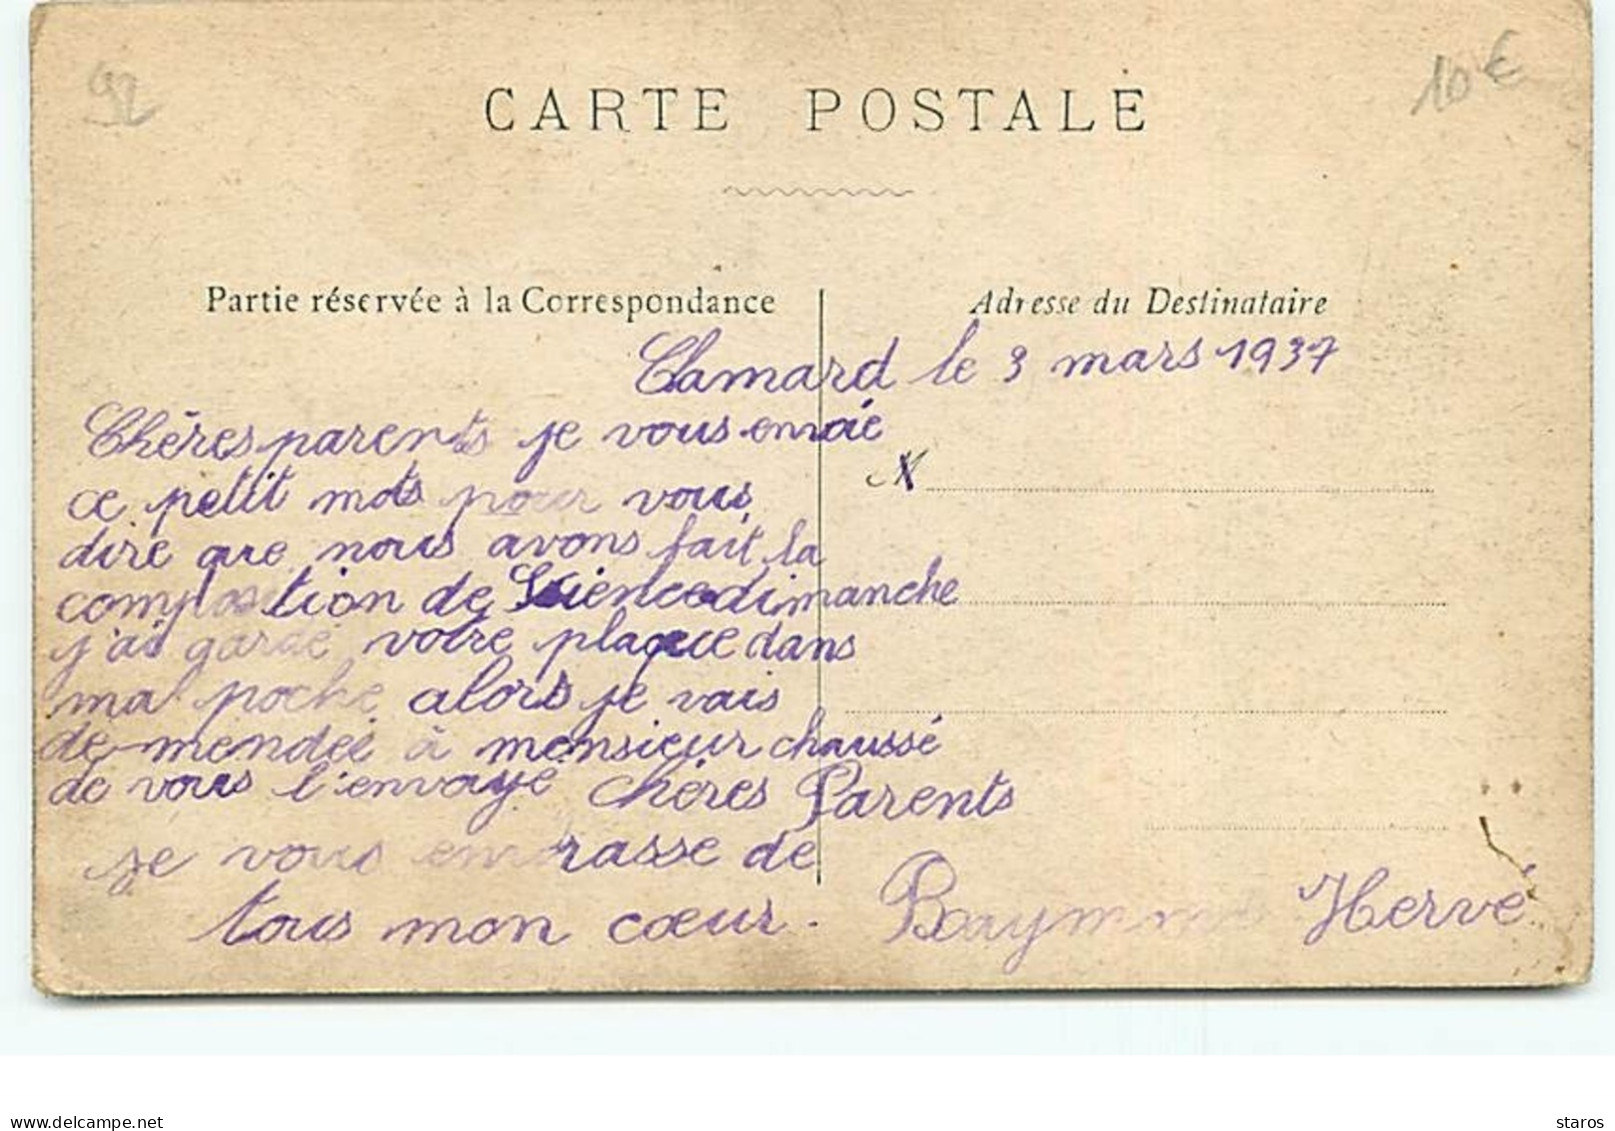 92
10 €
CARTE POSTALE
Partie réservée à la Correspondance
Adresse du Destinataire
Clamard le 3 mars 1937
Chères parents je vous envoie
ce petit mots pour vous
dire que nous avons fait la
composition de Science dimanche
j'ai gardé votre plaque dans
ma poche alors je vais
de mendée à monsieur chaussé
de vous l'envoyé chères Parents
je vous embrasse de
tous mon cœur. Raymond Hervé
M
www.delcampe.net
staros